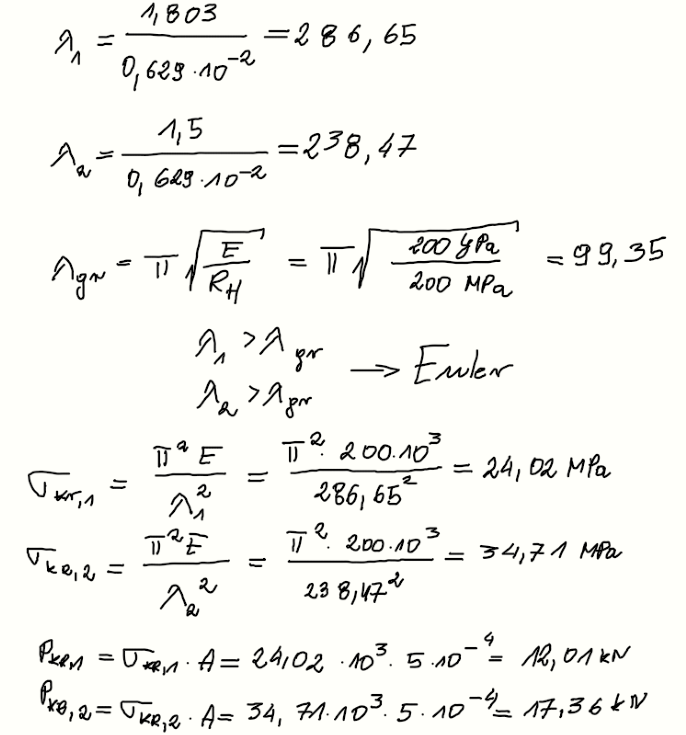 λ₁ = 1,803 / 0,629·10⁻² = 286,65
λ₂ = 1,5 / 0,629·10⁻² = 238,47
λgr = π√(E / R_H) = π√(200 GPa / 200 MPa) = 99,35
λ₁ > λgr
λ₂ > λgr → Euler
σkr,1 = π² E / λ₁² = π² · 200·10³ / 286,65² = 24,02 MPa
σkr,2 = π² E / λ₂² = π² · 200·10³ / 238,47² = 34,71 MPa
PKR,1 = σKR,1 · A = 24,02 · 10³ · 5 · 10⁻⁴ = 12,01 kN
PKR,2 = σKR,2 · A = 34,71·10³ · 5 · 10⁻⁴ = 17,36 kN